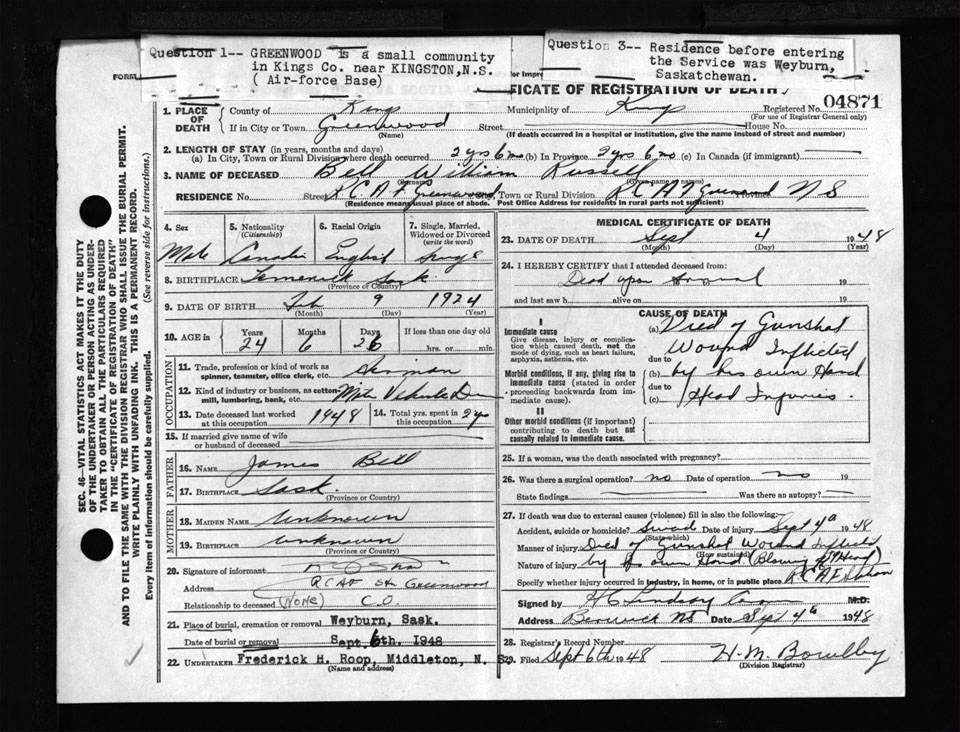 Question 1-- GREENWOOD is a small community
in Kings Co. near KINGSTON,N.S.
( Air-force Base)
Question 3-- Residence before entering
the Service was Weyburn,
Saskatchewan.
FICATE OF REGISTRATION OF DEATH
1. PLACE OF DEATH County of Kings Municipality of Kings Registered No. 04871
(For use of Registrar General only)
If in City or Town Greenwood Street House No.
(Name) (If death occurred in a hospital or institution, give the name instead of street and number)
2. LENGTH OF STAY (in years, months and days)
(a) In City, Town or Rural Division where death occurred 2 yrs 6 m (b) In Province 2 yrs 6 mo (c) In Canada (if immigrant)
3. NAME OF DECEASED Bell William Russell
(Surname) (Given name or names)
RESIDENCE No. Street R.C.A.F. Greenwood, Town or Rural Division R C A F Greenwood Province N S
(Residence means usual place of abode. Post Office Address for residents in rural parts not sufficient)
4. Sex 5. Nationality (Citizenship) 6. Racial Origin 7. Single, Married, Widowed or Divorced (write the word)
Male English Single
8. BIRTHPLACE Sask.
(Province or Country)
9. DATE OF BIRTH Feb 9 1924
(Month) (Day) (Year)
10. AGE in Years Months Days If less than one day old
24 6 26 hrs. or min.
OCCUPATION
11. Trade, profession or kind of work as spinner, teamster, office clerk, etc. Airman
12. Kind of industry or business, as cotton-mill, lumbering, bank, etc.
13. Date deceased last worked at this occupation 1948 14. Total yrs. spent in this occupation
15. If married give name of wife or husband of deceased
FATHER
16. NAME James Bell
17. BIRTHPLACE Sask.
(Province or Country)
MOTHER
18. MAIDEN NAME Unknown
19. BIRTHPLACE Unknown
(Province or Country)
20. Signature of informant
Address RCAF Stn Greenwood
Relationship to deceased (None) C.O.
21. Place of burial, cremation or removal Weyburn, Sask.
Date of burial or removal Sept. 6th. 1948
22. UNDERTAKER Frederick H. Roop, Middleton, N. S.
(Name and address)
MEDICAL CERTIFICATE OF DEATH
23. DATE OF DEATH Sept 4 1948
(Month) (Day) (Year)
24. I HEREBY CERTIFY that I attended deceased from
Dead upon Arrival 19
and last saw h alive on 19
CAUSE OF DEATH
I
Immediate cause
Give disease, injury or complication which caused death, not the mode of dying, such as heart failure, asphyxia, asthenia, etc.
(a) Died of Gunshot
due to Wound Inflicted
Morbid conditions, if any, giving rise to immediate cause (stated in order proceeding backwards from immediate cause).
(b) by his own Hand
due to
(c) Head Injuries.
II
Other morbid conditions (if important) contributing to death but not causally related to immediate cause.
25. If a woman, was the death associated with pregnancy?
26. Was there a surgical operation? no Date of operation no 19
State findings Was there an autopsy?
27. If death was due to external causes (violence) fill in also the following:
Accident, suicide or homicide? Date of injury Sept 4th 1948
(State which)
Manner of injury Died of Gunshot Wound Inflicted
(How sustained)
Nature of injury by his own Hand. (Blowing Off Head)
Specify whether injury occurred in industry, in home, or in public place R.C.A.F. Station
Signed by H C Lindsay M.D.
Address Berwick NS Date Sept 4th 1948
28. Registrar's Record Number
29. Filed Sept 6th 1948 H. M. Bowlby
(Division Registrar)
SEC. 46—VITAL STATISTICS ACT MAKES IT THE DUTY
OF THE UNDERTAKER OR PERSON ACTING AS UNDER-
TAKER TO OBTAIN ALL THE PARTICULARS REQUIRED
IN THE "CERTIFICATE OF REGISTRATION OF DEATH"
AND TO FILE THE SAME WITH THE DIVISION REGISTRAR WHO SHALL ISSUE THE BURIAL PERMIT.
WRITE PLAINLY WITH UNFADING INK. THIS IS A PERMANENT RECORD.
Every item of information should be carefully supplied. (See reverse side for instructions.)